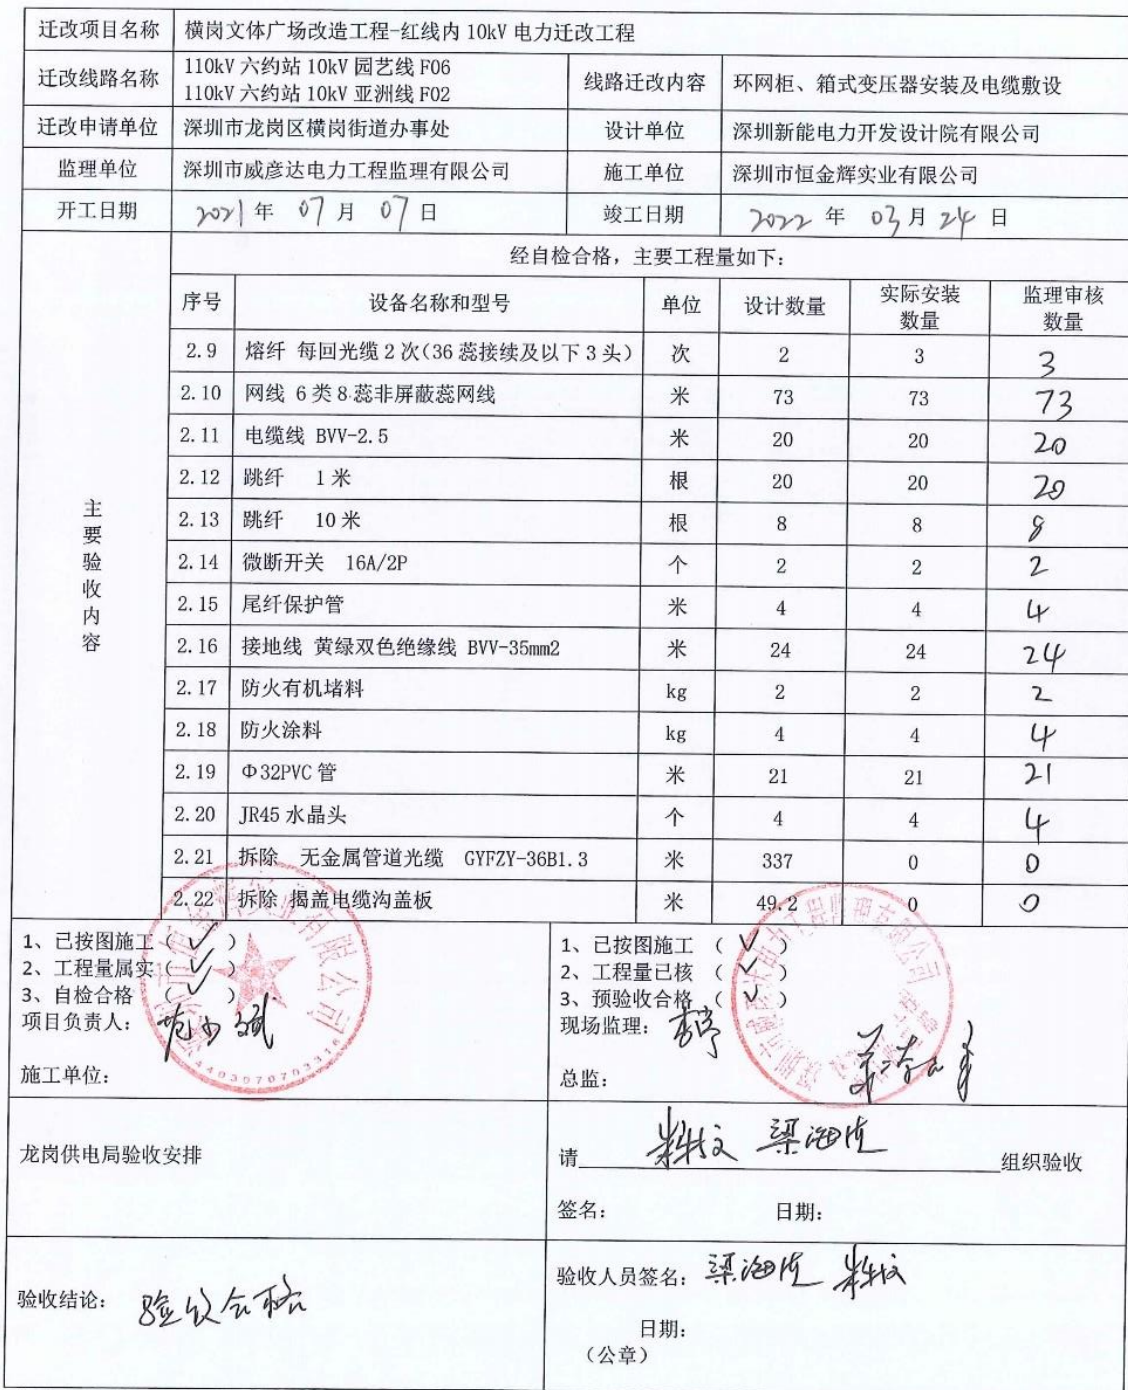 迁改项目名称 横岗文体广场改造工程-红线内 10kV 电力迁改工程
迁改线路名称 110kV 六约站 10kV 园艺线 F06
110kV 六约站 10kV 亚洲线 F02 线路迁改内容 环网柜、箱式变压器安装及电缆敷设
迁改申请单位 深圳市龙岗区横岗街道办事处 设计单位 深圳新能电力开发设计院有限公司
监理单位 深圳市威彦达电力工程监理有限公司 施工单位 深圳市恒金辉实业有限公司
开工日期 2021 年 07 月 07 日 竣工日期 2022 年 03 月 24 日
主要验收内容
经自检合格，主要工程量如下：
序号 设备名称和型号 单位 设计数量 实际安装数量 监理审核数量
2.9 熔纤 每回光缆 2 次（36 蕊接续及以下 3 头） 次 2 3 3
2.10 网线 6 类 8 蕊非屏蔽蕊网线 米 73 73 73
2.11 电缆线 BVV-2.5 米 20 20 20
2.12 跳纤 1 米 根 20 20 20
2.13 跳纤 10 米 根 8 8 8
2.14 微断开关 16A/2P 个 2 2 2
2.15 尾纤保护管 米 4 4 4
2.16 接地线 黄绿双色绝缘线 BVV-35mm2 米 24 24 24
2.17 防火有机堵料 kg 2 2 2
2.18 防火涂料 kg 4 4 4
2.19 Φ32PVC 管 米 21 21 21
2.20 JR45 水晶头 个 4 4 4
2.21 拆除 无金属管道光缆 GYFZY-36B1.3 米 337 0 0
2.22 拆除 揭盖电缆沟盖板 米 49.2 0 0
1、已按图施工（ ✓ ）
2、工程量属实（ ✓ ）
3、自检合格 （ ✓ ）
项目负责人：
施工单位：
1、已按图施工 （ ✓ ）
2、工程量已核 （ ✓ ）
3、预验收合格 （ ✓ ）
现场监理：
总监：
龙岗供电局验收安排
请 组织验收
签名： 日期：
验收结论： 验收合格
验收人员签名：
日期：
（公章）